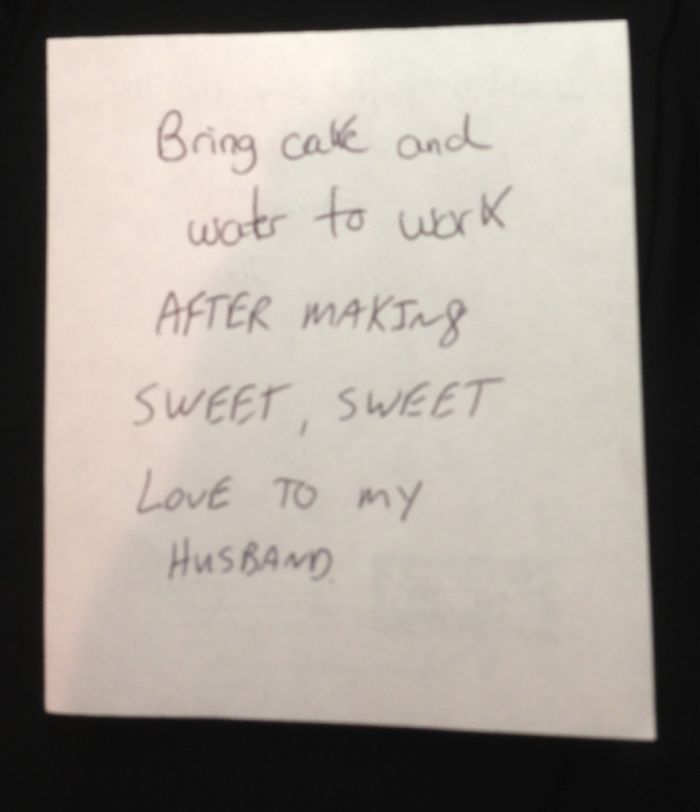 Bring cake and
water to work
AFTER MAKING
SWEET, SWEET
LOVE TO MY
HUSBAND.